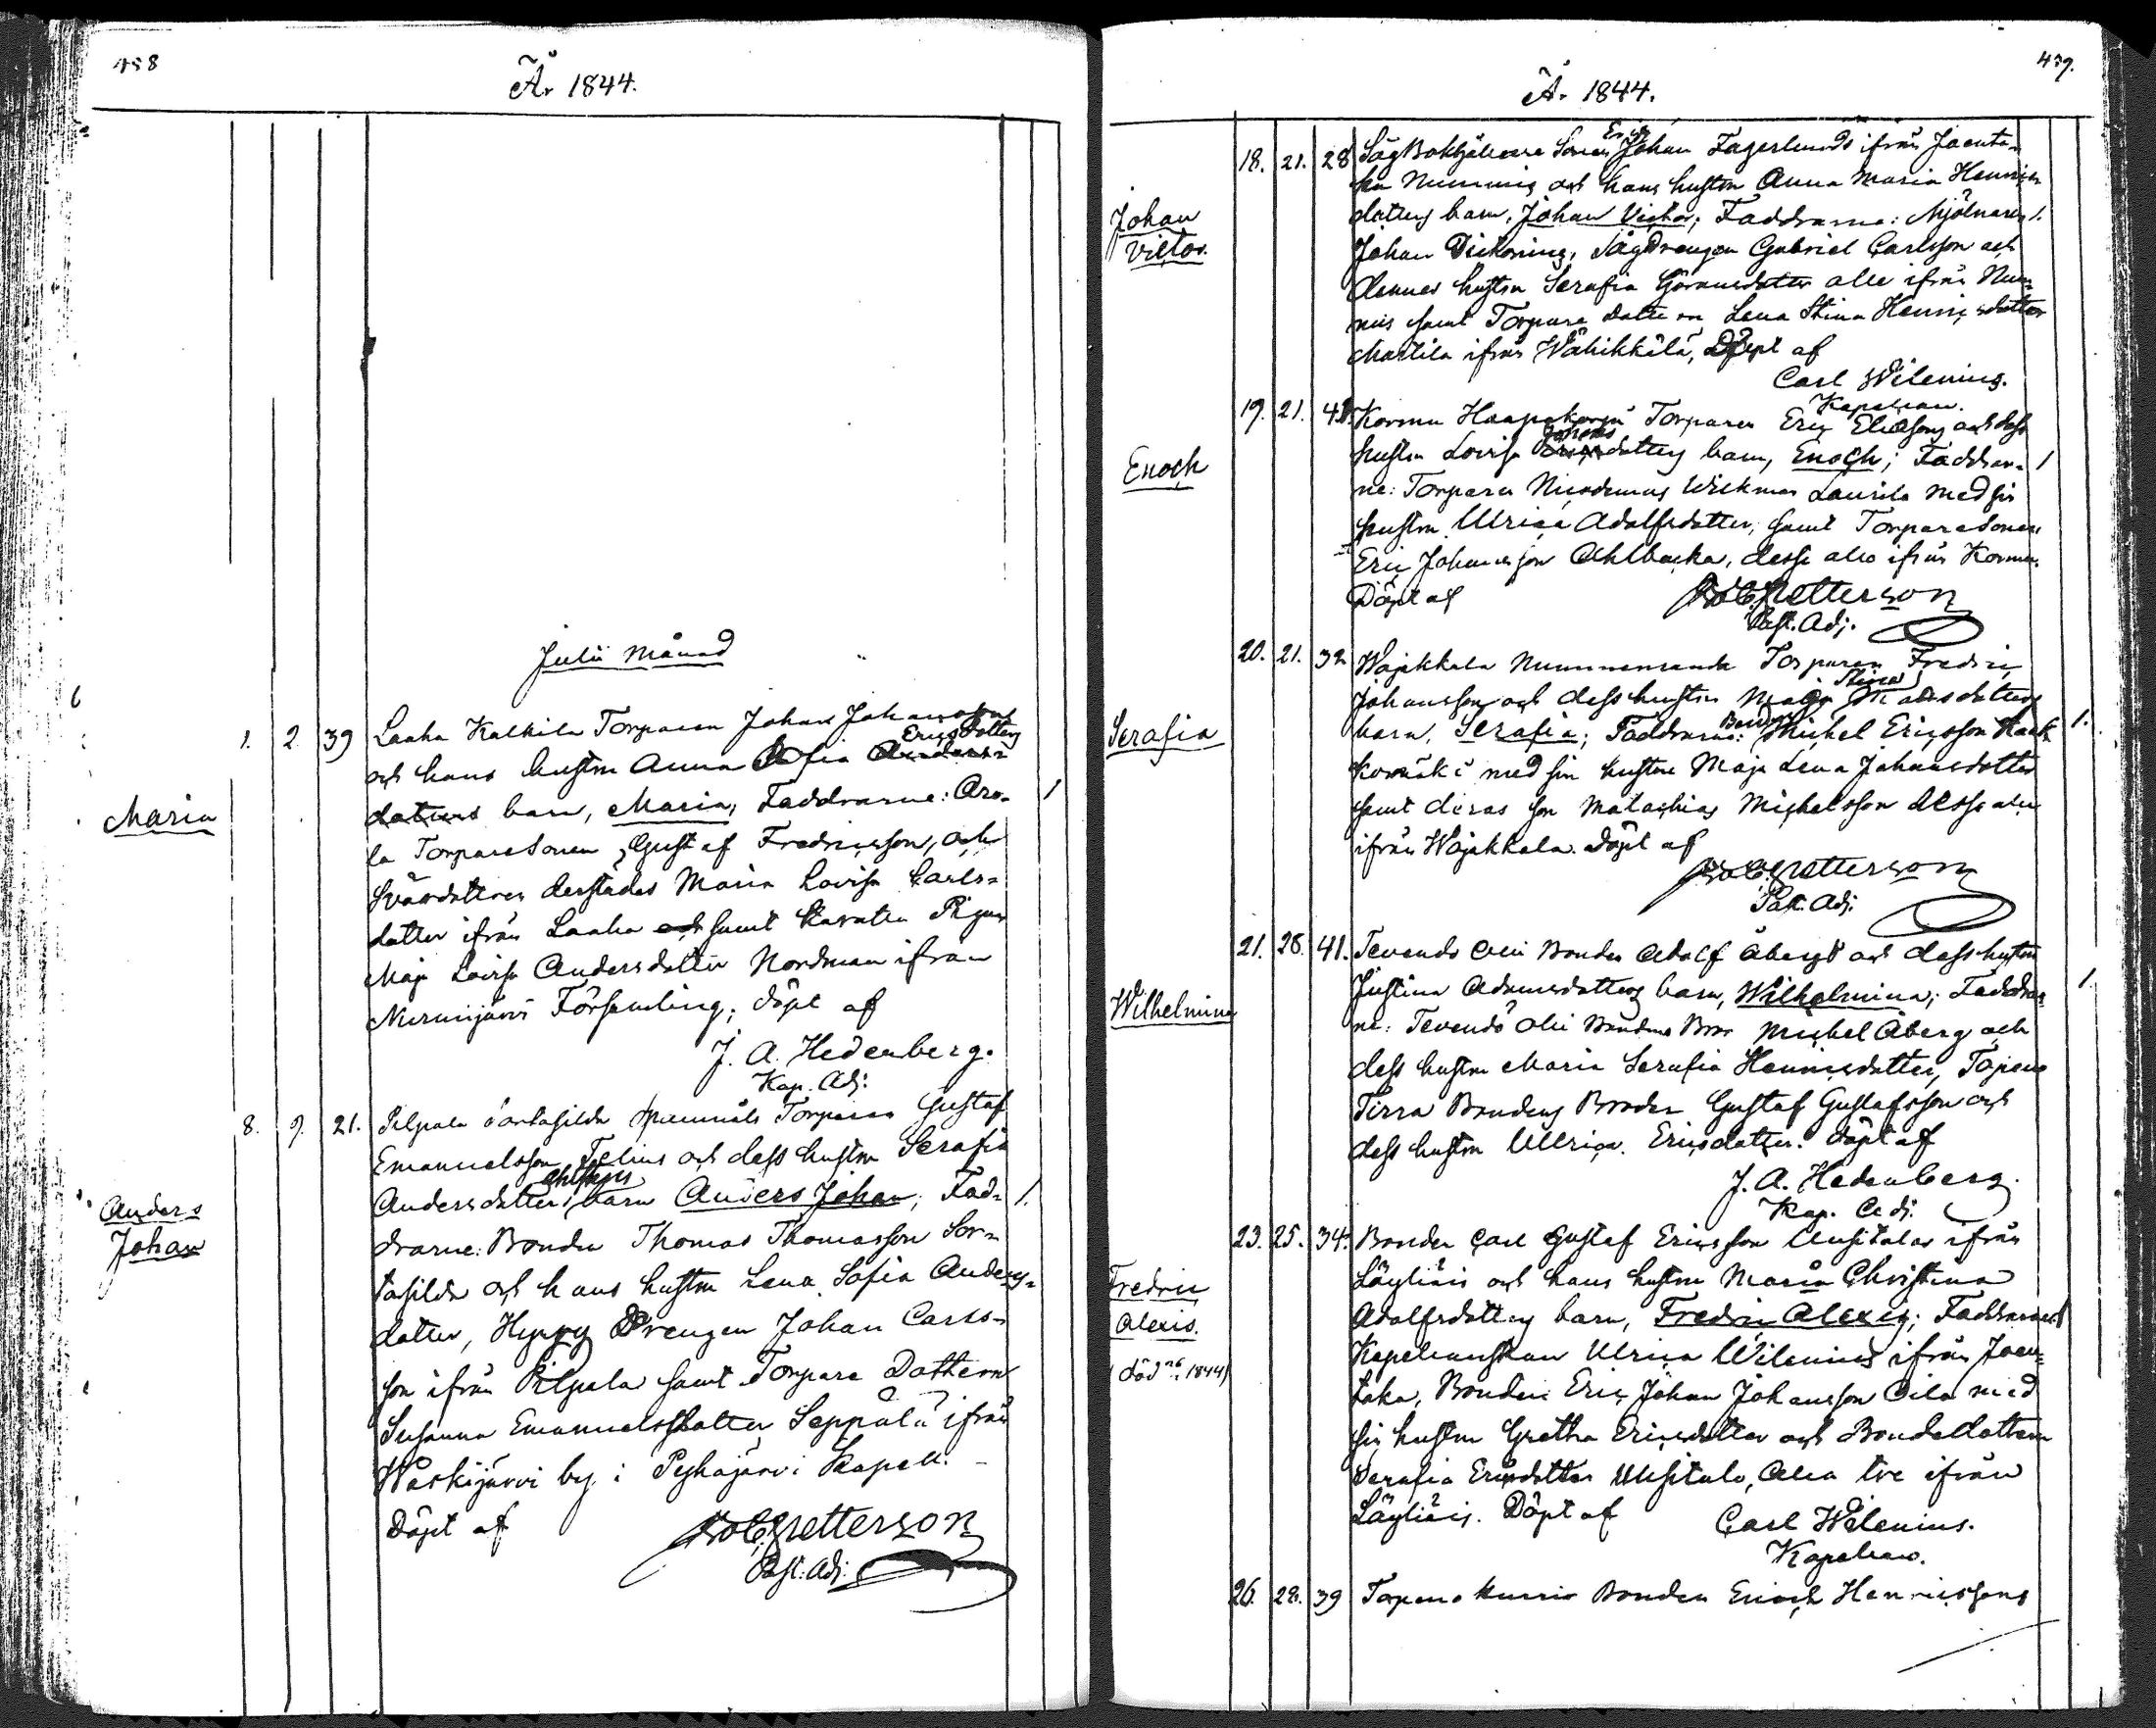 458
År 1844.
Julii Månad
1. 2. 39 Laaha Kalkila Torparen Johan Johanssons
och hans hustru Anna Sofia Ericsdotters
barn, Maria, Faddrarne: Aro-
Maria
la Torparesonen Gustaf Fredricsson, och
Svärdottren derstädes Maria Lovisa Carls-
dotter ifrån Laaha samt Pigan
Maja Lovisa Andersdotter Nordman ifrån
Nurmijärvi Församling; döpt af
J. A. Hedenberg.
Kap. Adj.
8. 9. 21. Pilpala Sortasilda Torparen Gustaf
Emanuelsson Telius och dess hustru Serafia
Andersdotter barn Anders Johan; Fad- 1.
Anders
Johan
drarne: Bonden Thomas Thomasson Sor-
tasilda och hans hustru Lena Sofia Anders-
dotter, Hyppy Drengen Johan Carls-
son ifrån Pilpala samt Torpare Dottern
Susanna Emanuelsdotter Seppälä ifrån
Waskijärvi by i Pyhäjärvi Kapell.
Döpt af
Petterson
Past. Adj.
439.
År 1844.
18. 21. 28 Såg Bokhållare Sonen Eric Johan Fagerlunds ifrån Joenta-
ka Nummis och hans hustru Anna Maria Henrics
dotters barn, Johan Victor; Faddrarne: Mjölnaren 1.
Johan
Victor.
Johan Sågdrengen Gabriel Carlsson och
dennes hustru Serafia Göransdotter alle ifrån Num-
mis samt Torpare Dottren Lena Stina Henricsdotter
Martila ifrån Wähikkälä, Döpt af
Carl Wilenius.
Kapellan.
19. 21. 41. Kormu Haapakorpi Torparen Eric Eliassons och dess
hustru Lovisa Johansdotters barn, Enoch; Faddrar- 1
Enoch
ne: Torparen Nicodemus Wickman Laurila med sin
hustru Ulrica Adolfsdotter, samt Torparesonen
Eric Johansson Ahlbacka, desse alla ifrån Kormu.
Döpt af
Petterson
Past. Adj.
20. 21. 32 Wojakkala Torparen Fredric
Johansson och dess hustru Maja Stina Matsdotters
barn, Serafia; Faddrarne: Bonden Michel Ericsson Haak 1.
Serafia
med sin hustru Maja Lena Johansdotter
samt deras son Matathias Michelsson desse alla
ifrån Wojakkala. Döpt af
Petterson
Past. Adj.
21. 28. 41. Tevendö Olli Bonden Adolf Åbergs och dess hustru
Justina Adamsdotters barn, Wilhelmina; Faddrar 1.
Wilhelmina
ne: Tevendö Olli Bondens Bror Michel Åberg och
dess hustru Maria Serafia Henricsdotter, Topeno
Tirra Bondens Broder Gustaf Gustafsson och
dess hustru Ullrica Ericsdotter. Döpt af
J. A. Hedenberg.
Kap. Adj.
23. 25. 34. Bonden Carl Gustaf Ericsson Uusitalos ifrån
Läyliäis och hans hustru Maria Christina
Fredric
Adolfsdotters barn, Fredric Alexis; Faddrarne:
Alexis.
Kapellanskan Ulrica Wilenius ifrån Joen-
död 1844
taka, Bonden Eric Johan Johansson Oila med
sin hustru Gretha Ericsdotter och Bondedottern
Serafia Ericsdotter Uusitalo, Alla tre ifrån
Läyliäis. Döpt af
Carl Wilenius.
Kapellan.
26. 28. 39 Topeno Kurris Bonden Enoch Henricssons